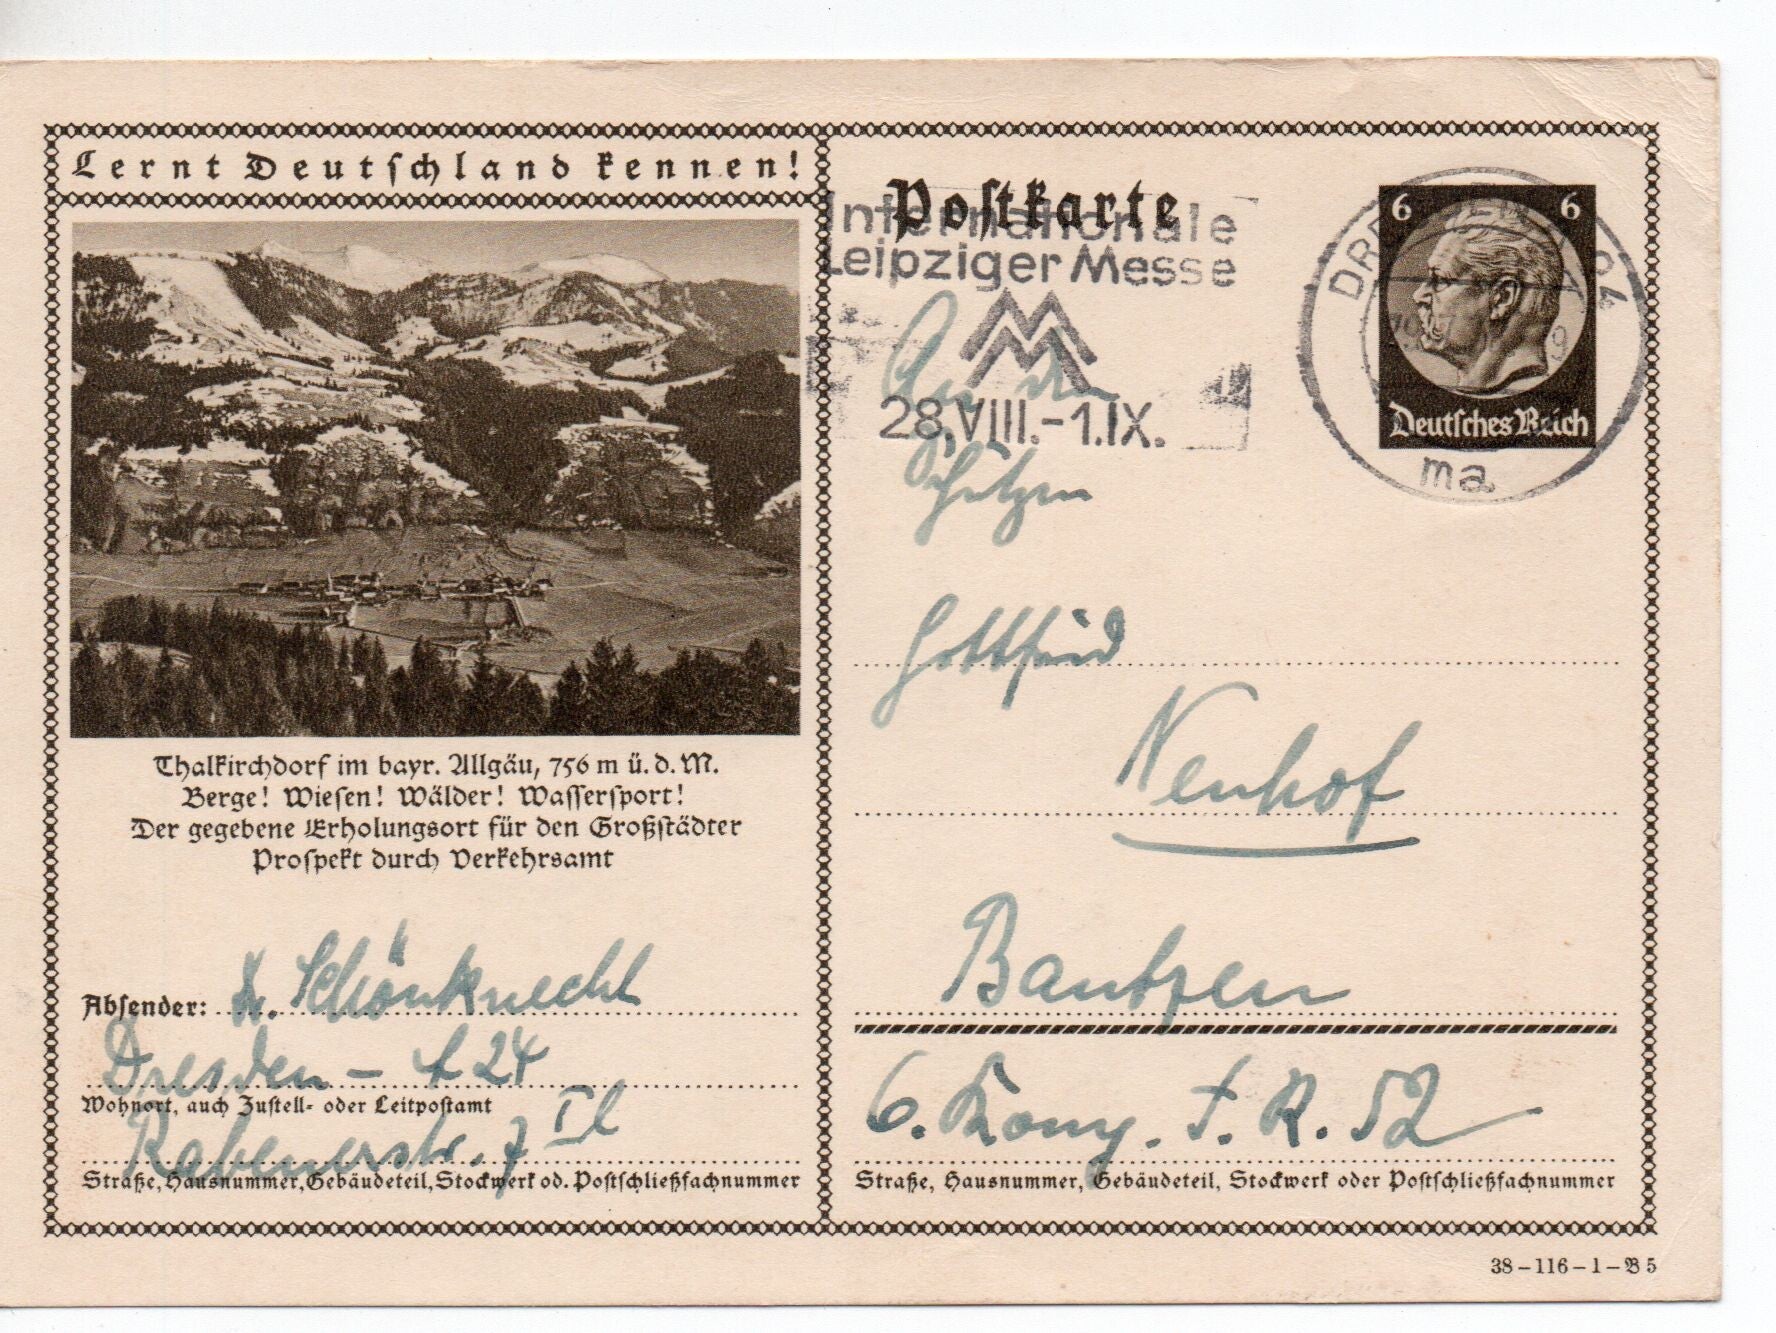 Lernt Deutschland kennen!
Thalkirchdorf im bayr. Allgäu, 756 m ü. d. M.
Berge! Wiesen! Wälder! Wassersport!
Der gegebene Erholungsort für den Großstädter
Prospekt durch Verkehrsamt
Absender: Dr. Schönknecht
Dresden – A 24
Wohnort, auch Zustell- oder Leitpostamt
Rabenerstr. 7 II
Straße, Hausnummer, Gebäudeteil, Stockwerk od. Postschließfachnummer
Postkarte
Internationale
Leipziger Messe
28.VIII.-1.IX.
6 6
Deutsches Reich
ma
An den
Schützen
Gottfried
Neuhof
Bautzen
6. Komp. I. R. 52
Straße, Hausnummer, Gebäudeteil, Stockwerk oder Postschließfachnummer
38–116–1–B 5